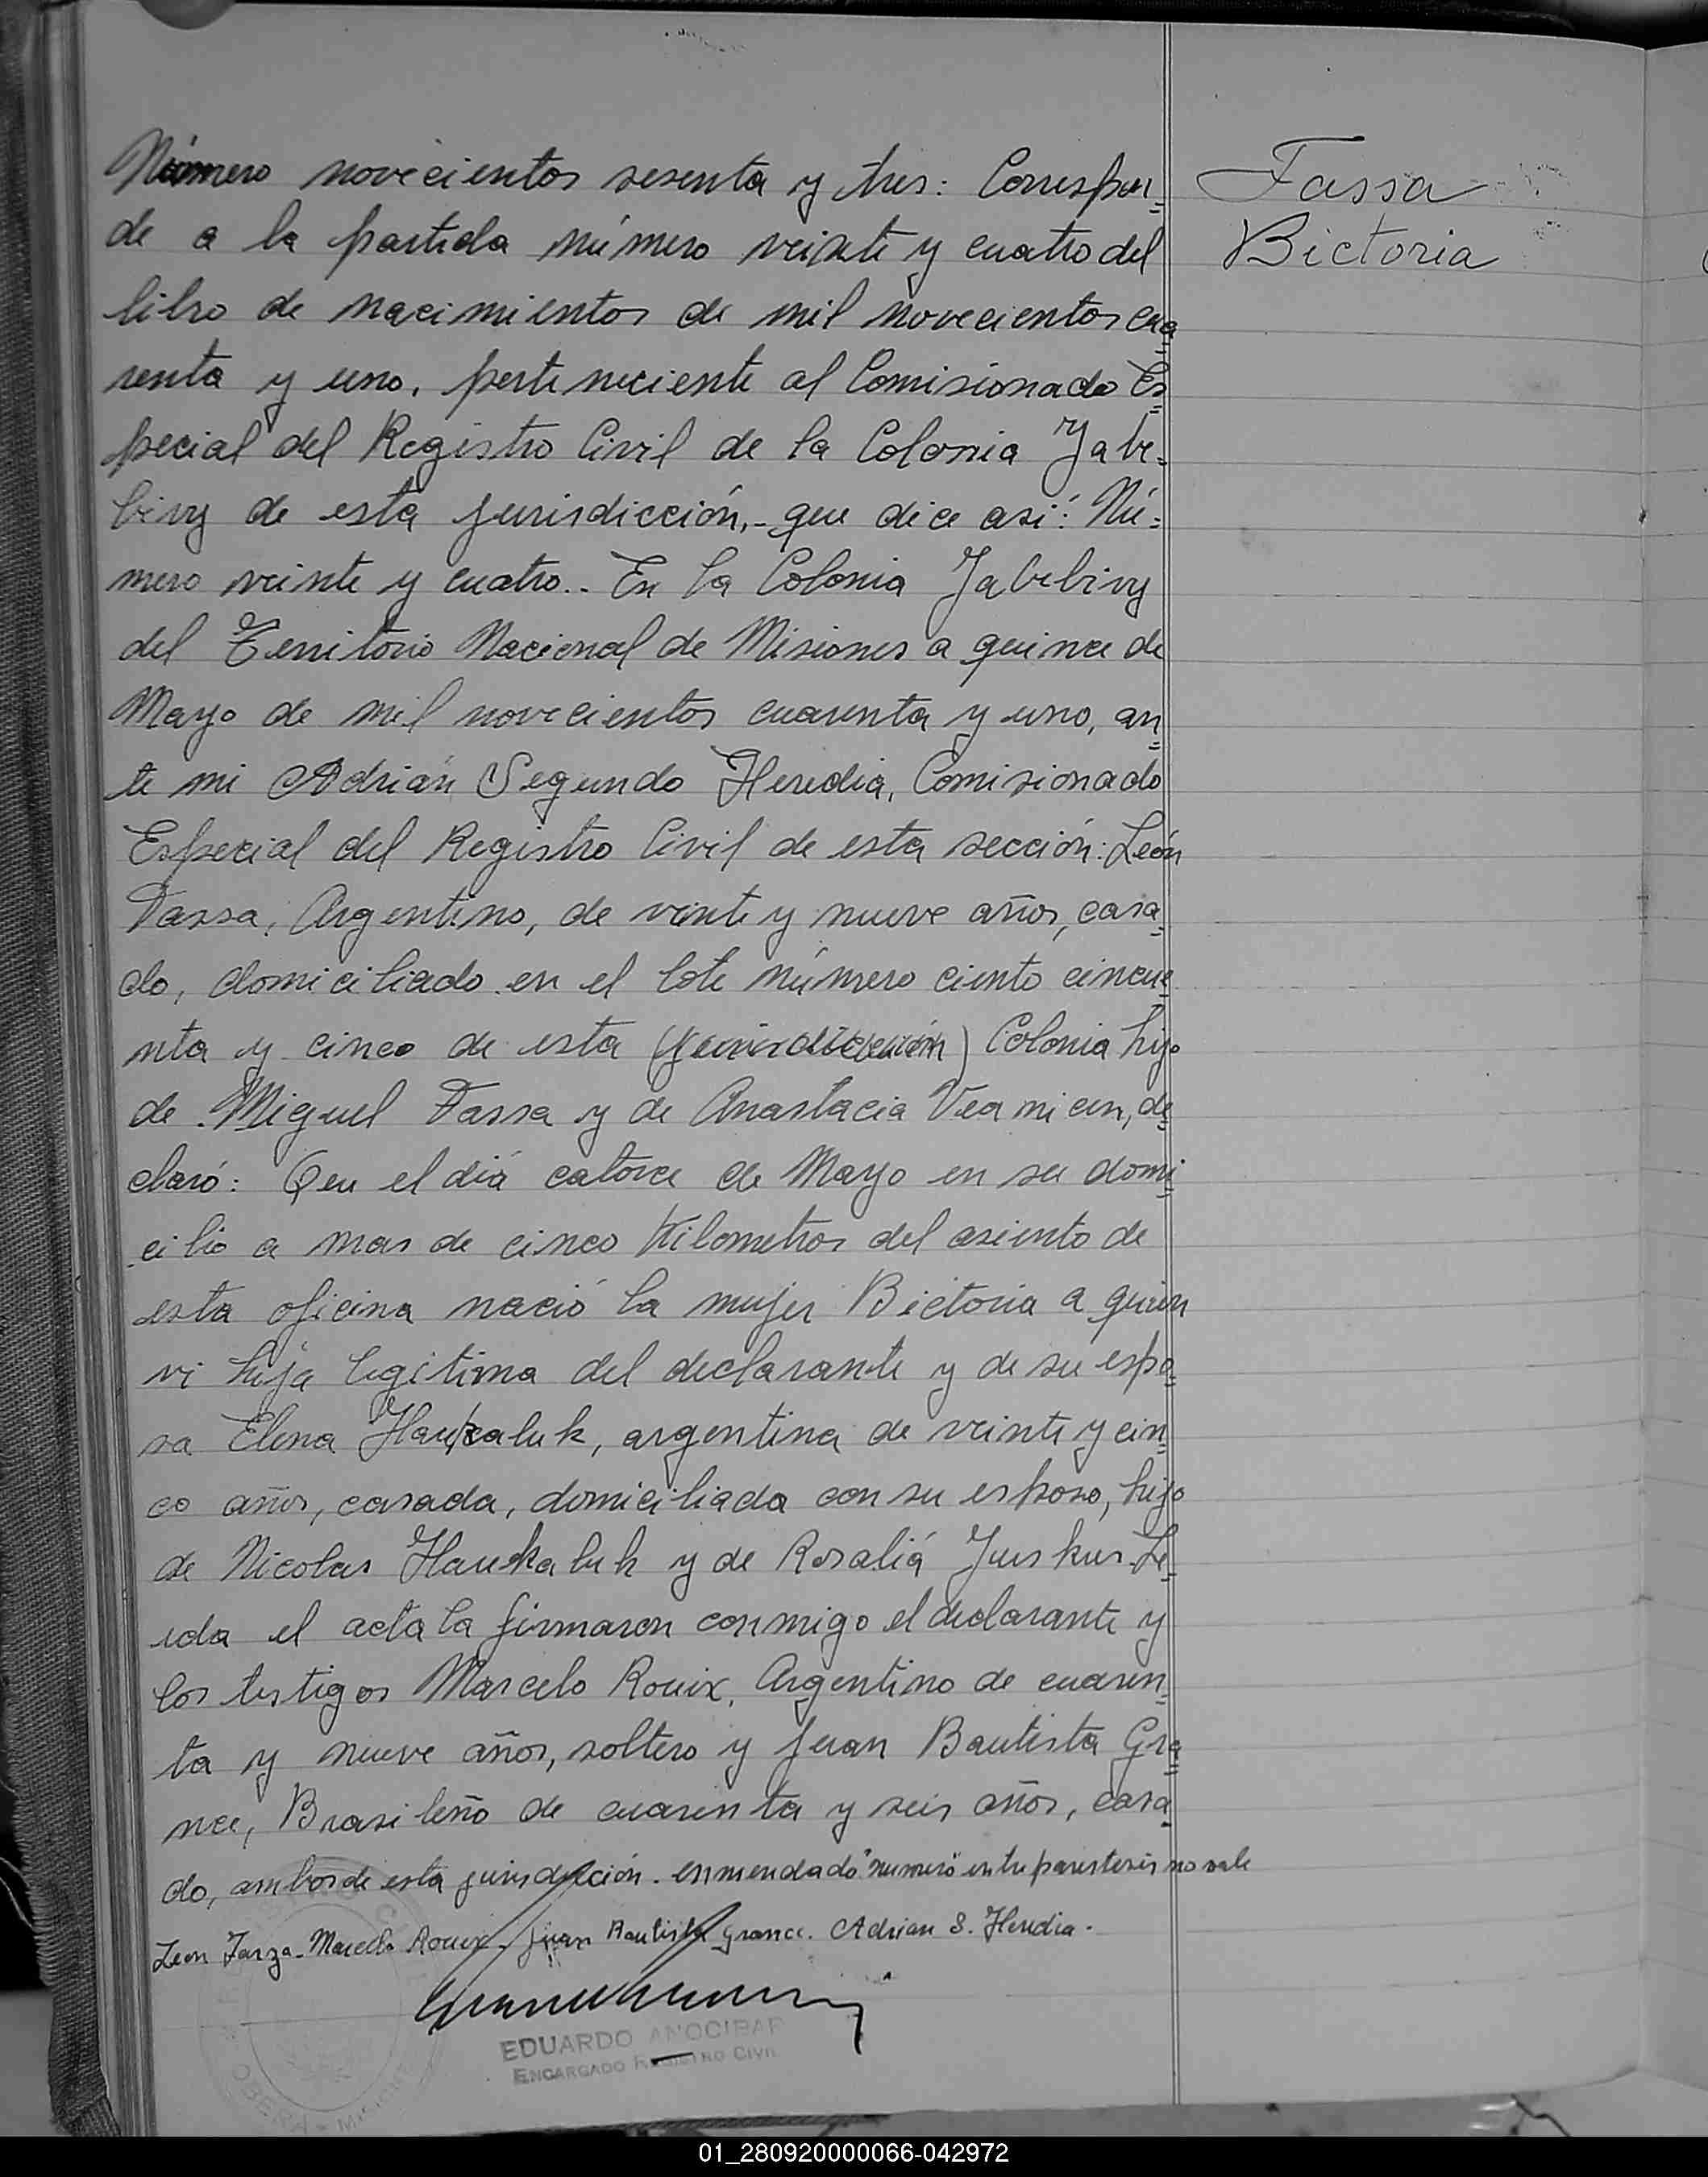 Número novecientos sesenta y tres: Correspon=
de a la partida número veinte y cuatro del
libro de nacimientos de mil novecientos cua=
renta y uno, perteneciente al Comisionado Es=
pecial del Registro Civil de la Colonia Yabe=
biry de esta jurisdicción,- que dice así: Nú=
mero veinte y cuatro.- En la Colonia Yabebiry
del Territorio Nacional de Misiones a quince de
Mayo de mil novecientos cuarenta y uno, an=
te mi Adrián Segundo Heredia, Comisionado
Especial del Registro Civil de esta sección: León
Tassa, Argentino, de veinte y nueve años, casa=
do, domiciliado en el lote número ciento cincue=
nta y cinco de esta (jurisdicción) Colonia hijo
de Miguel Tassa y de Anastacia de=
claró: Qeu el día catorce de Mayo en su domi=
cilio a mas de cinco Kilometros del asiento de
esta oficina nació la mujer Bictoria a quien
vi hija legitima del declarante y de su espo=
sa Elena Haukaluk, argentina de veinte y cin=
co años, casada, domiciliada con su esposo, hijo
de Nicolas Haukaluk y de Rosaliá Juskus. Le=
ida el acta la firmaron conmigo el declarante y
los testigos Marcelo Rouix, Argentino de cuaren=
ta y nueve años, soltero y Juan Bautista Gra=
nce, Brasileño de cuarenta y seis años, casa=
do, ambos de esta jurisdicción. enmendado "numero" entre parentesis no vale
Leon Tarza. Marcelo Rouix. Juan Bautista Grance. Adrian S. Heredia.
EDUARDO ANOCIBAR
ENCARGADO REGISTRO CIVIL
OBERA - MISIONES
Fassa
Bictoria
01_280920000066-042972